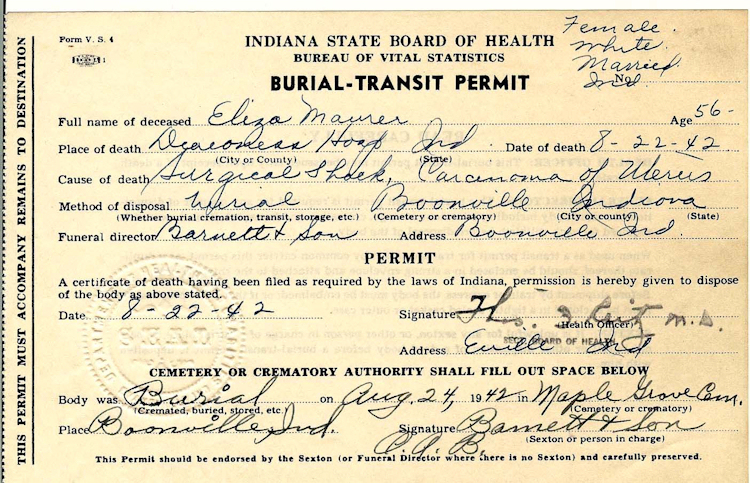 THIS PERMIT MUST ACCOMPANY REMAINS TO DESTINATION
Form V. S. 4
INDIANA STATE BOARD OF HEALTH
BUREAU OF VITAL STATISTICS
BURIAL-TRANSIT PERMIT
Female
White
Married
No. Ind.
Full name of deceased Eliza Maurer Age 56-
Place of death Deaconess Hosp Ind Date of death 8-22-42
(City or County) (State)
Cause of death Surgical Shock, Carcinoma of Uterus
Method of disposal burial Boonville Indiana
(Whether burial cremation, transit, storage, etc.) (Cemetery or crematory) (City or county) (State)
Funeral director Barnett & Son Address Boonville Ind.
PERMIT
A certificate of death having been filed as required by the laws of Indiana, permission is hereby given to dispose
of the body as above stated.
Date 8-22-42 Signature M.D.
(Health Officer)
BOARD OF HEALTH
Address Eville Ind
CEMETERY OR CREMATORY AUTHORITY SHALL FILL OUT SPACE BELOW
Body was Burial on Aug. 24, 1942 in Maple Grove Cem.
(Cremated, buried, stored, etc.) (Cemetery or crematory)
Place Boonville, Ind. Signature Barnett & Son
(Sexton or person in charge)
C.A.B.
This Permit should be endorsed by the Sexton (or Funeral Director where there is no Sexton) and carefully preserved.